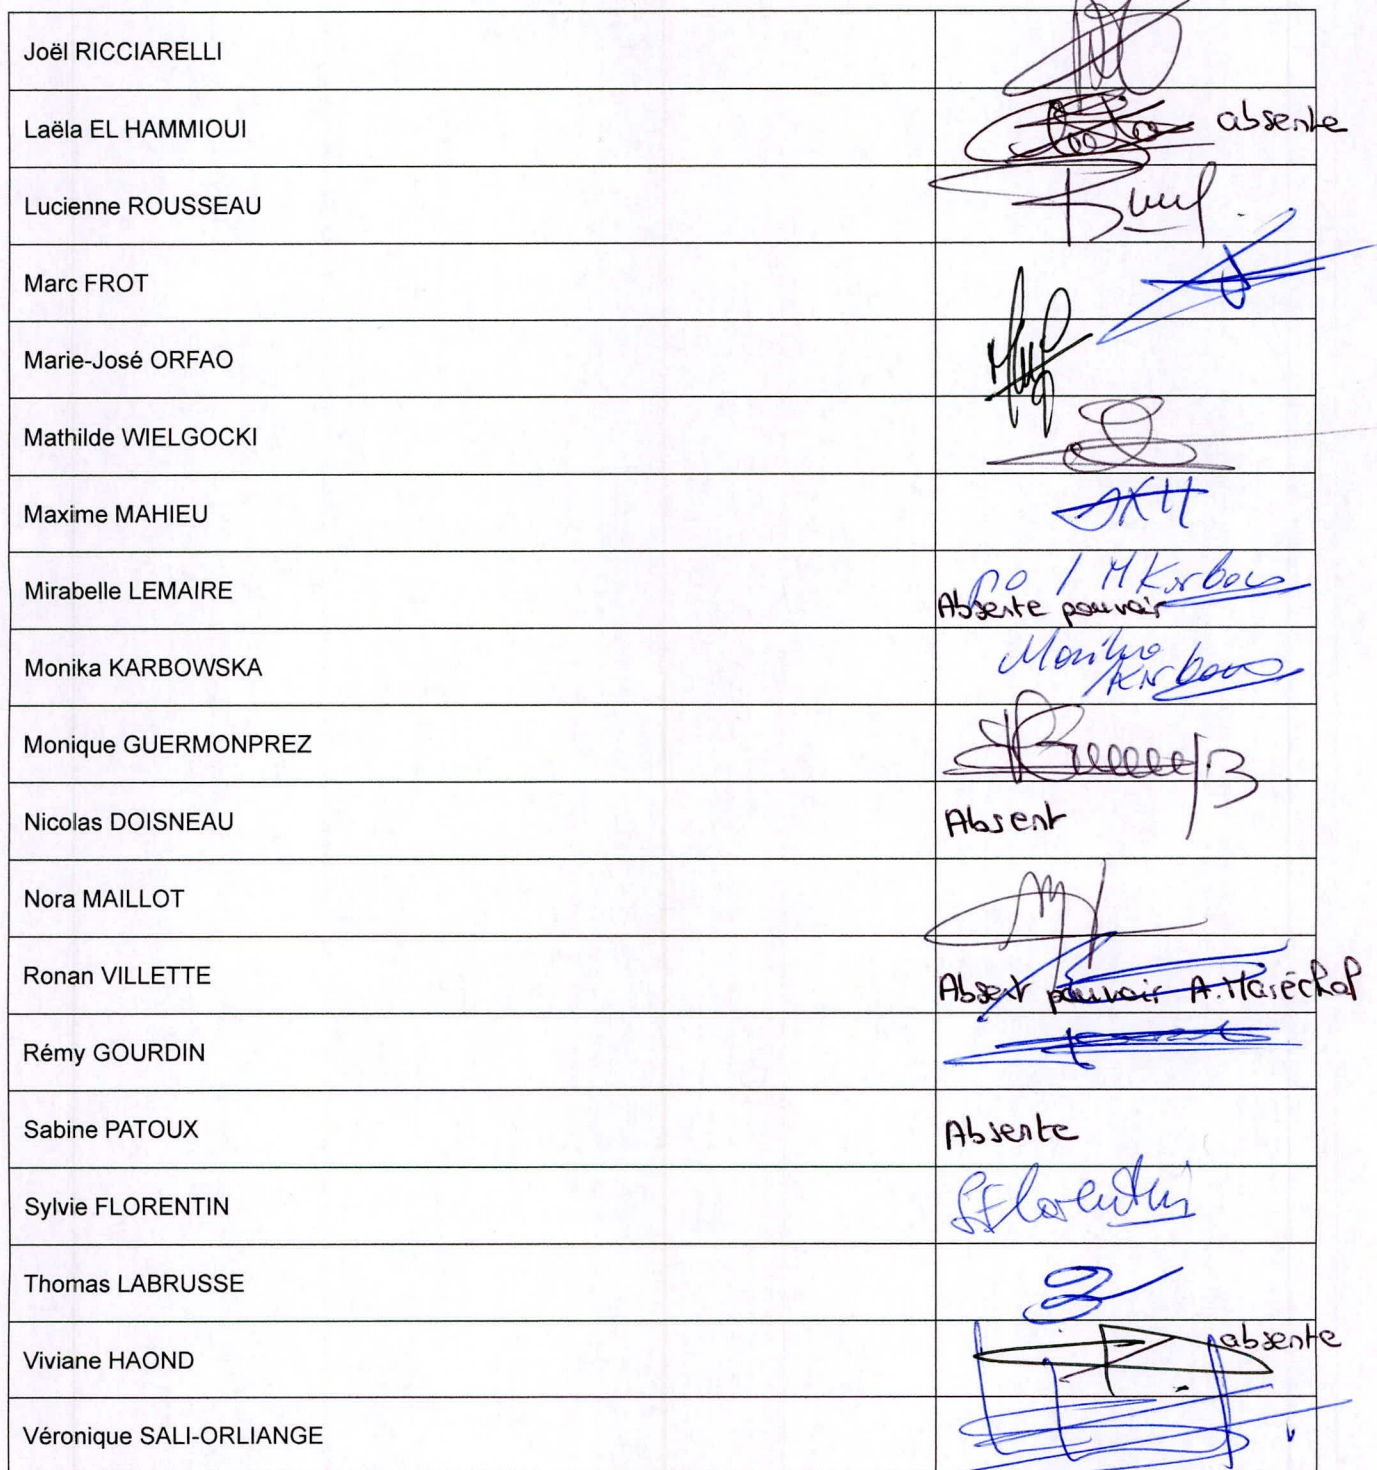 Joël RICCIARELLI
Laëla EL HAMMIOUI absente
Lucienne ROUSSEAU
Marc FROT
Marie-José ORFAO
Mathilde WIELGOCKI
Maxime MAHIEU
Mirabelle LEMAIRE po / M Karbows
Absente pouvoir
Monika KARBOWSKA Monika
Karbows
Monique GUERMONPREZ
Nicolas DOISNEAU Absent
Nora MAILLOT
Ronan VILLETTE Absent pouvoir A. Maréchal
Rémy GOURDIN
Sabine PATOUX Absente
Sylvie FLORENTIN SFlorentin
Thomas LABRUSSE
Viviane HAOND absente
Véronique SALI-ORLIANGE